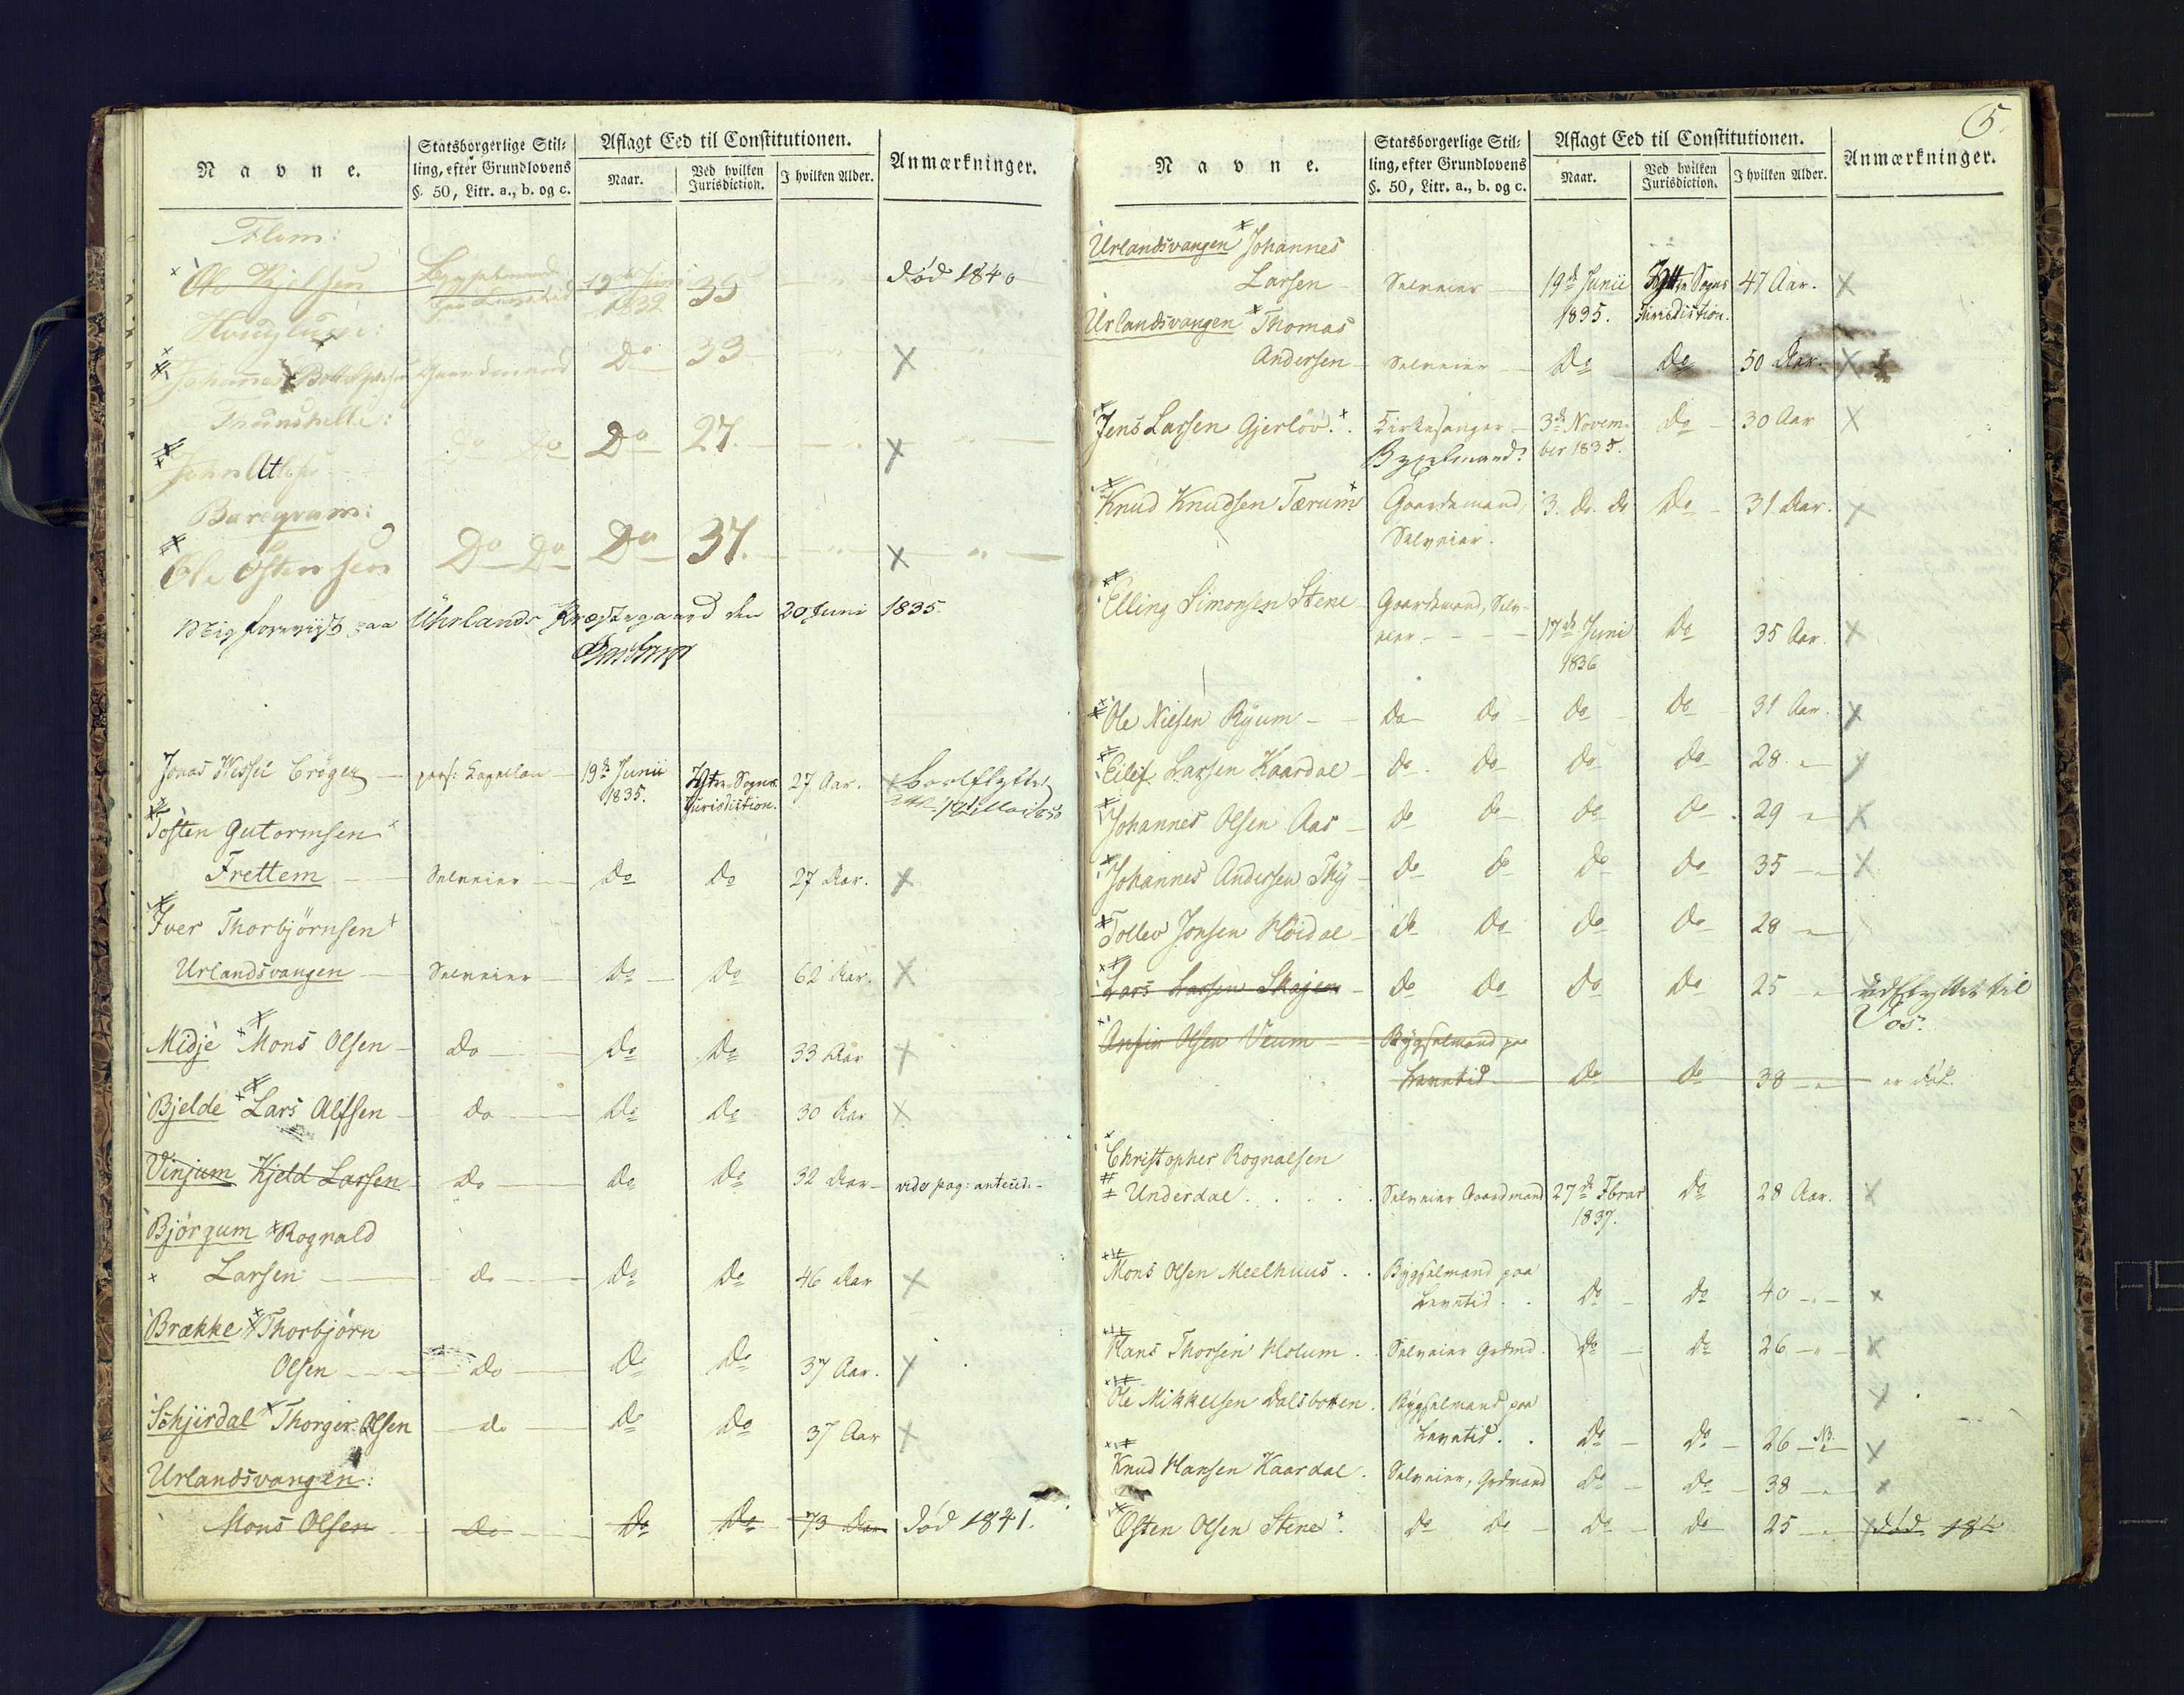 Navne.
Statsborgerlige Stil-
ling, efter Grundlovens
§. 50, Litr. a., b. og c.
Aflagt Eed til Constitutionen.
Naar.
Ved hvilken
Jurisdiction.
I hvilken Alder.
Anmærkninger.
Flom:
Død 1840
1832
Johannes
Gaardmand Do 33
Do Do Do 27.
John
Do Do Do 37.
Ole Østensen
Mig foreviist paa Uhrlands Præstegaard den 20 Juni 1835.
Jonas Wessel Crøger pers: Capellan 19de Junii Ytre Sogns 27 Aar. bortflyttet
1835. Jurisdiction.
Tosten Gutormsen
Frettem Selveier Do Do 27 Aar.
Iver Thorbjørnsen
Urlandsvangen Selveier Do Do 62 Aar.
Midje Mons Olsen Do Do Do 33 Aar
Bjelde Lars Alfsen Do Do Do 30 Aar
Vinjum Kjeld Larsen Do Do Do 32 Aar vide pag: anteced:
Bjørgum Rognald
Larsen Do Do Do 46 Aar
Brække Thorbjørn
Olsen Do Do Do 37 Aar.
Schjirdal Thorger Olsen Do Do Do 37 Aar
Urlandsvangen:
Mons Olsen Do Do Do 73 Aar død 1841.
5.
Navne.
Statsborgerlige Stil-
ling, efter Grundlovens
§. 50, Litr. a., b. og c.
Aflagt Eed til Constitutionen.
Naar.
Ved hvilken
Jurisdiction.
I hvilken Alder.
Anmærkninger.
Urlandsvangen Johannes
Larsen Selveier 19de Junii Ytre Sogns 47 Aar.
1835. Jurisdiction.
Urlandsvangen Thomas
Andersen Selveier Do Do 50 Aar.
Jens Larsen Gjerløv. Kirkesanger 3de Novem- Do 30 Aar
Bygselmand ber 1835.
Knud Knudsen Tærum Gaardmand, 3. do. do Do 31 Aar.
Selveier.
Elling Simonsen Stene Gaardmand, Selv-
eier 17de Juni Do 35 Aar.
1836
Ole Nielsen Ryum Do Do Do Do 31 Aar.
Eilif Larsen Kaardal Do Do Do Do 28
Johannes Olsen Aas Do Do Do Do 29
Johannes Andersen Thy Do Do Do Do 35
Tollev Jonsen Høidal Do Do Do Do 28
Lars Larsen Skajem Do Do Do Do 25 udflyttet til
Vos.
Anfin Olsen Veum Bygselmand paa
Levetid Do Do 38 er død.
Christopher Rognalsen
Underdal Selveier Gaardmand 27de Fbrar Do 28 Aar.
1837.
Mons Olsen Meelhuus Bygselmand paa
Levetid Do Do 40
Hans Thorsen Holum Selveier Grdmd. Do Do 26
Ole Mikkelsen Dalsbotten Bygselmand paa
Levetid. Do Do 26
Knud Hansen Kaardal Selveier, Grdmand Do Do 38
Østen Olsen Stene Do Do Do Do 25 død 184